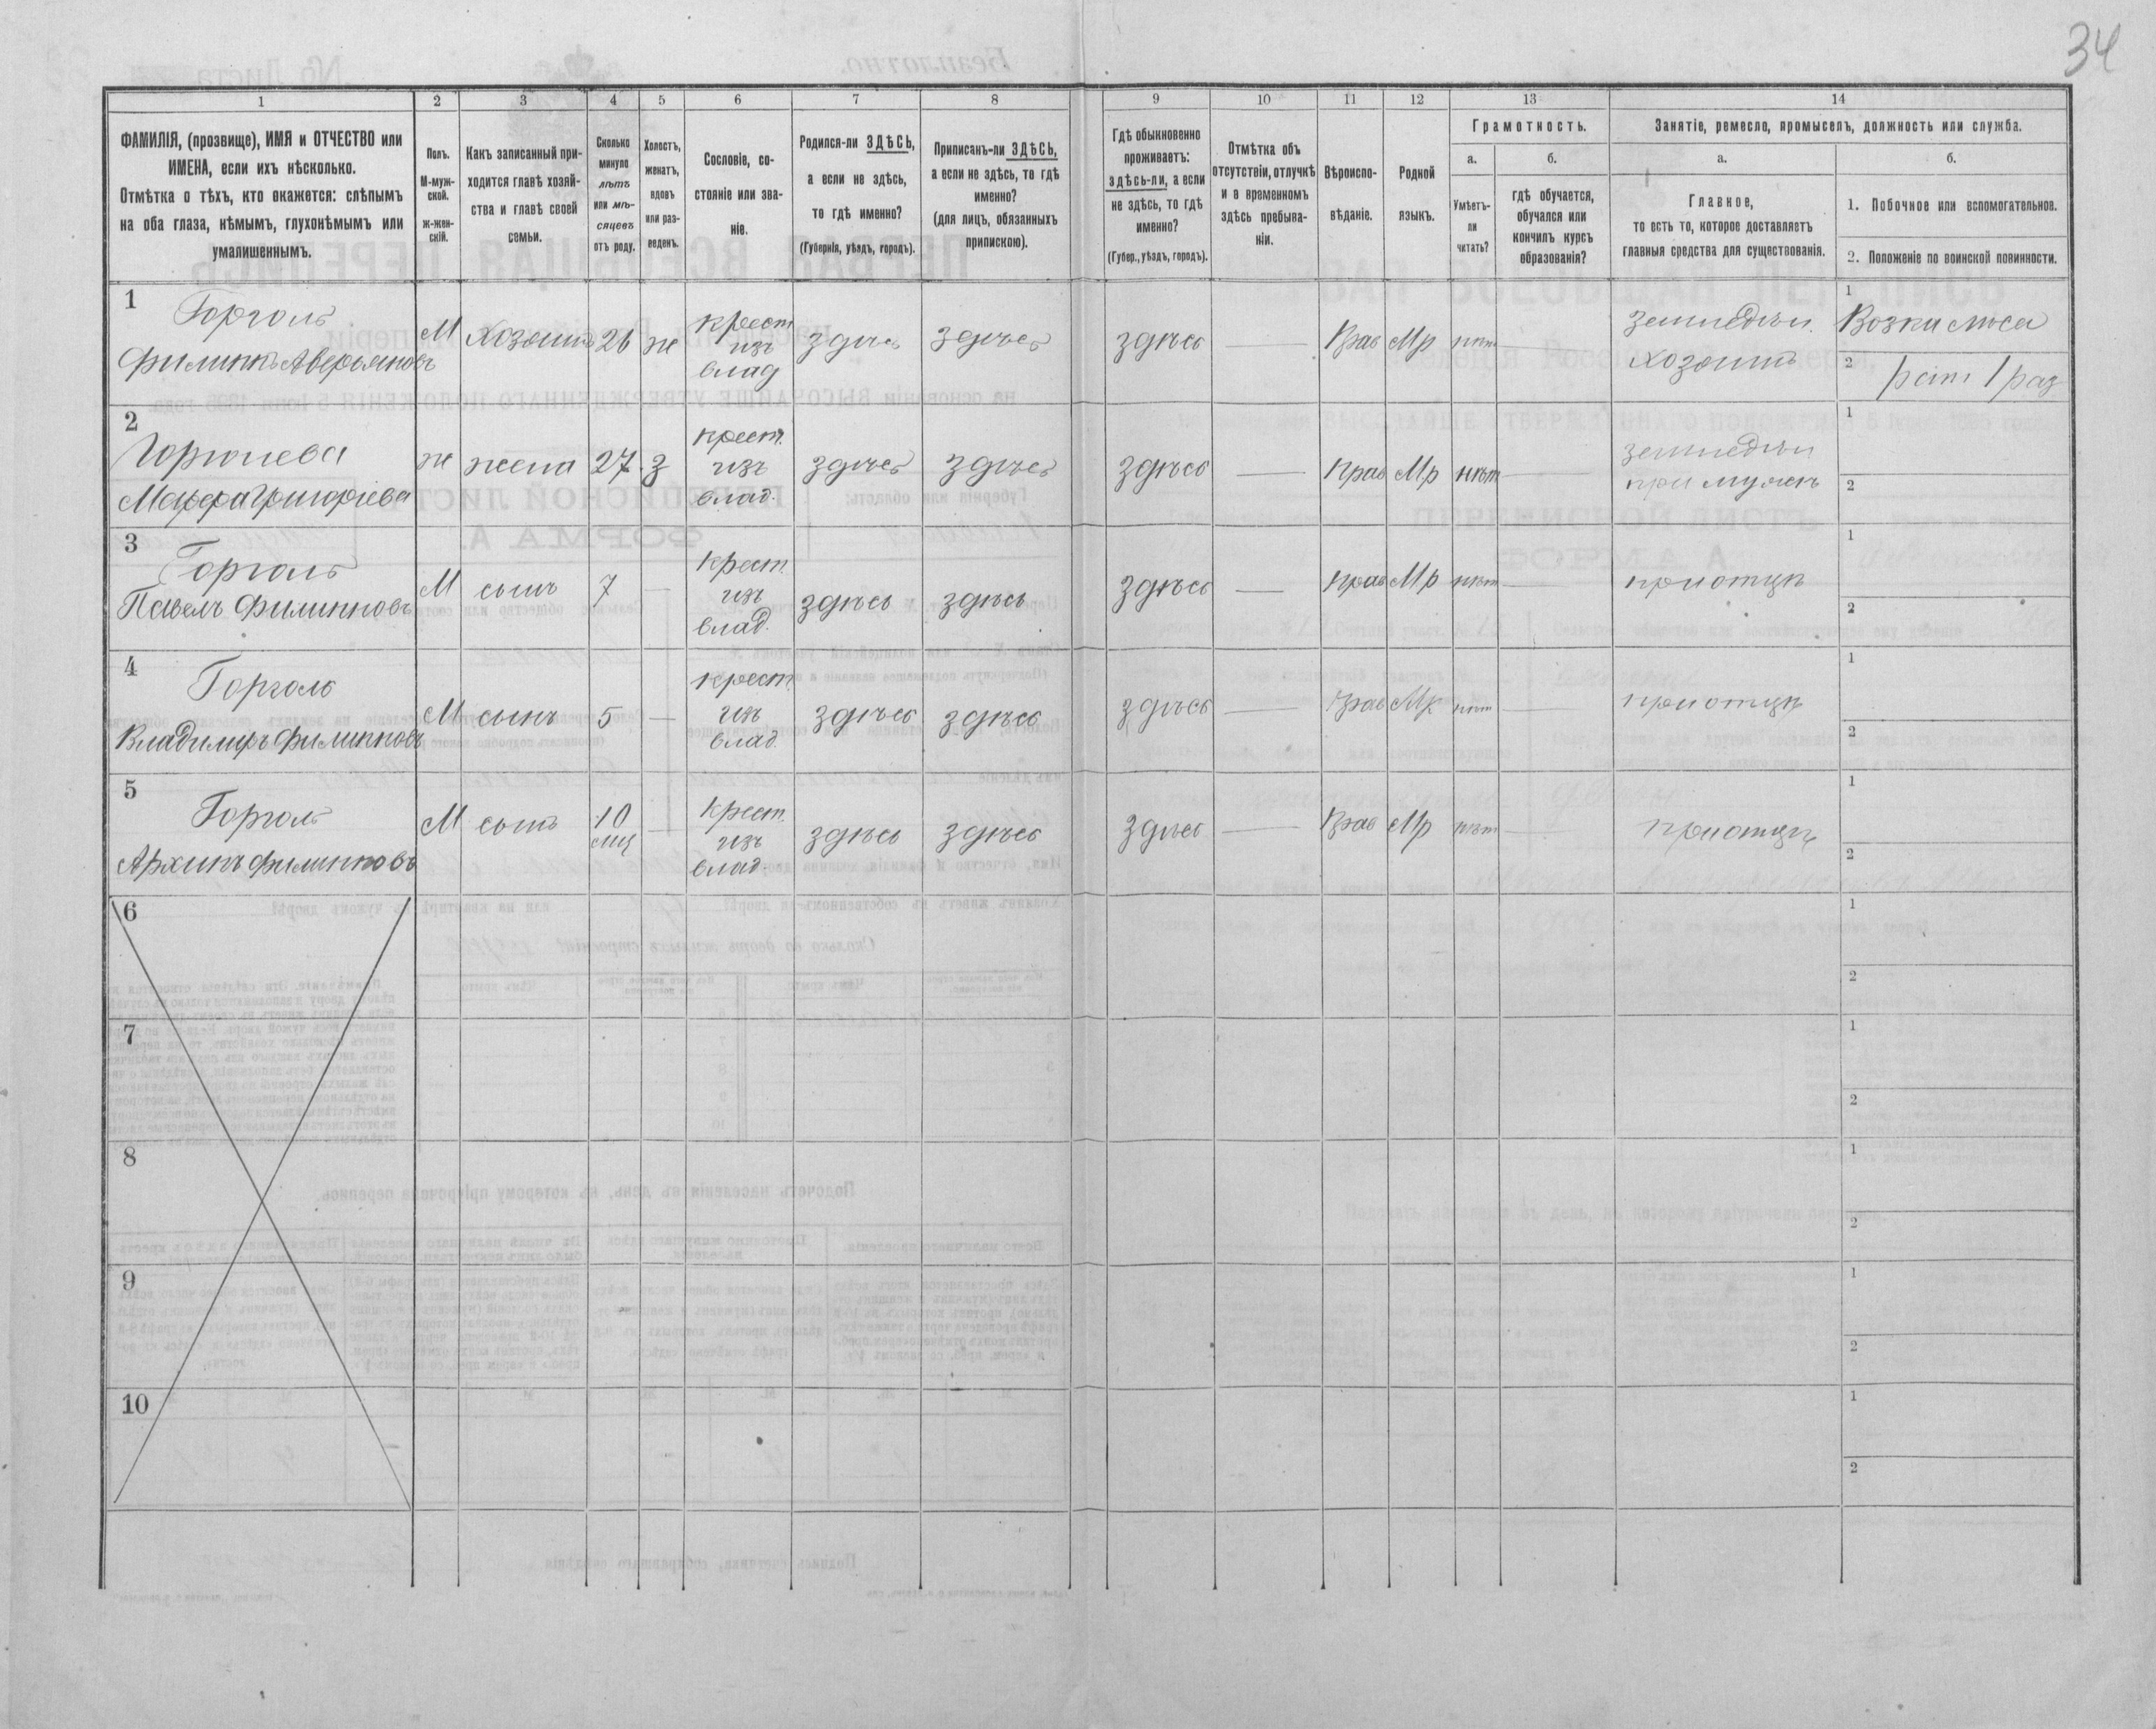 34
1 2 3 4 5 6 7 8 9 10 11 12 13 14
ФАМИЛІЯ, (прозвище), ИМЯ и ОТЧЕСТВО или
ИМЕНА, если ихъ нѣсколько.
Отмѣтка о тѣхъ, кто окажется: слѣпымъ
на оба глаза, нѣмымъ, глухонѣмымъ или
умалишеннымъ.
Полъ.
М-муж-
ской.
ж-жен-
скій.
Какъ записанный при-
ходится главѣ хозяй-
ства и главѣ своей
семьи.
Сколько
минуло
лѣтъ
или мѣ-
сяцевъ
отъ роду.
Холостъ,
женатъ,
вдовъ
или раз-
веденъ.
Сословіе, со-
стояніе или зва-
ніе.
Родился-ли ЗДѢСЬ,
а если не здѣсь,
то гдѣ именно?
(Губернія, уѣздъ, городъ).
Приписанъ-ли ЗДѢСЬ,
а если не здѣсь, то гдѣ
именно?
(для лицъ, обязанныхъ
припискою).
Гдѣ обыкновенно
проживаетъ:
здѣсь-ли, а если
не здѣсь, то гдѣ
именно?
(Губер., уѣздъ, городъ).
Отмѣтка объ
отсутствіи, отлучкѣ
и о временномъ
здѣсь пребыва-
ніи.
Вѣроиспо-
вѣданіе.
Родной
языкъ.
Грамотность.
а.
Умѣетъ-
ли
читать?
б.
гдѣ обучается,
обучался или
кончилъ курсъ
образованія?
Занятіе, ремесло, промыселъ, должность или служба.
а.
Главное,
то есть то, которое доставляетъ
главныя средства для существованія.
б.
1. Побочное или вспомогательное.
2. Положеніе по воинской повинности.
1
Горголь
Филиппъ Аверьяновъ
М
Хозяинъ
26
ж
крест
изъ
влад
здѣсь
здѣсь
здѣсь
Прав
Мр
нѣт
земледѣл.
хозяинъ
1
Возка лѣса
2
2
Марфа Григорьева
ж
жена
27
з
крест.
изъ
влад.
здѣсь
здѣсь
здѣсь
Прав
Мр
нѣт
земледѣл
при мужѣ
1
2
3
Горголь
Павелъ Филипповъ
М
сынъ
7
крест.
изъ
влад.
здѣсь
здѣсь
здѣсь
прав
Мр
нѣт
при отцѣ
1
2
4
Горголь
Владимиръ Филипповъ
М
сынъ
5
крест.
изъ
влад.
здѣсь
здѣсь
здѣсь
Прав
Мр
нѣт
при отцѣ
1
2
5
Горголь
Архипъ Филипповъ
М
сынъ
10
мц
крест.
изъ
влад.
здѣсь
здѣсь
здѣсь
Прав
Мр
нѣт
при отцѣ
1
2
6
1
2
7
1
2
8
1
2
9
1
2
10
1
2